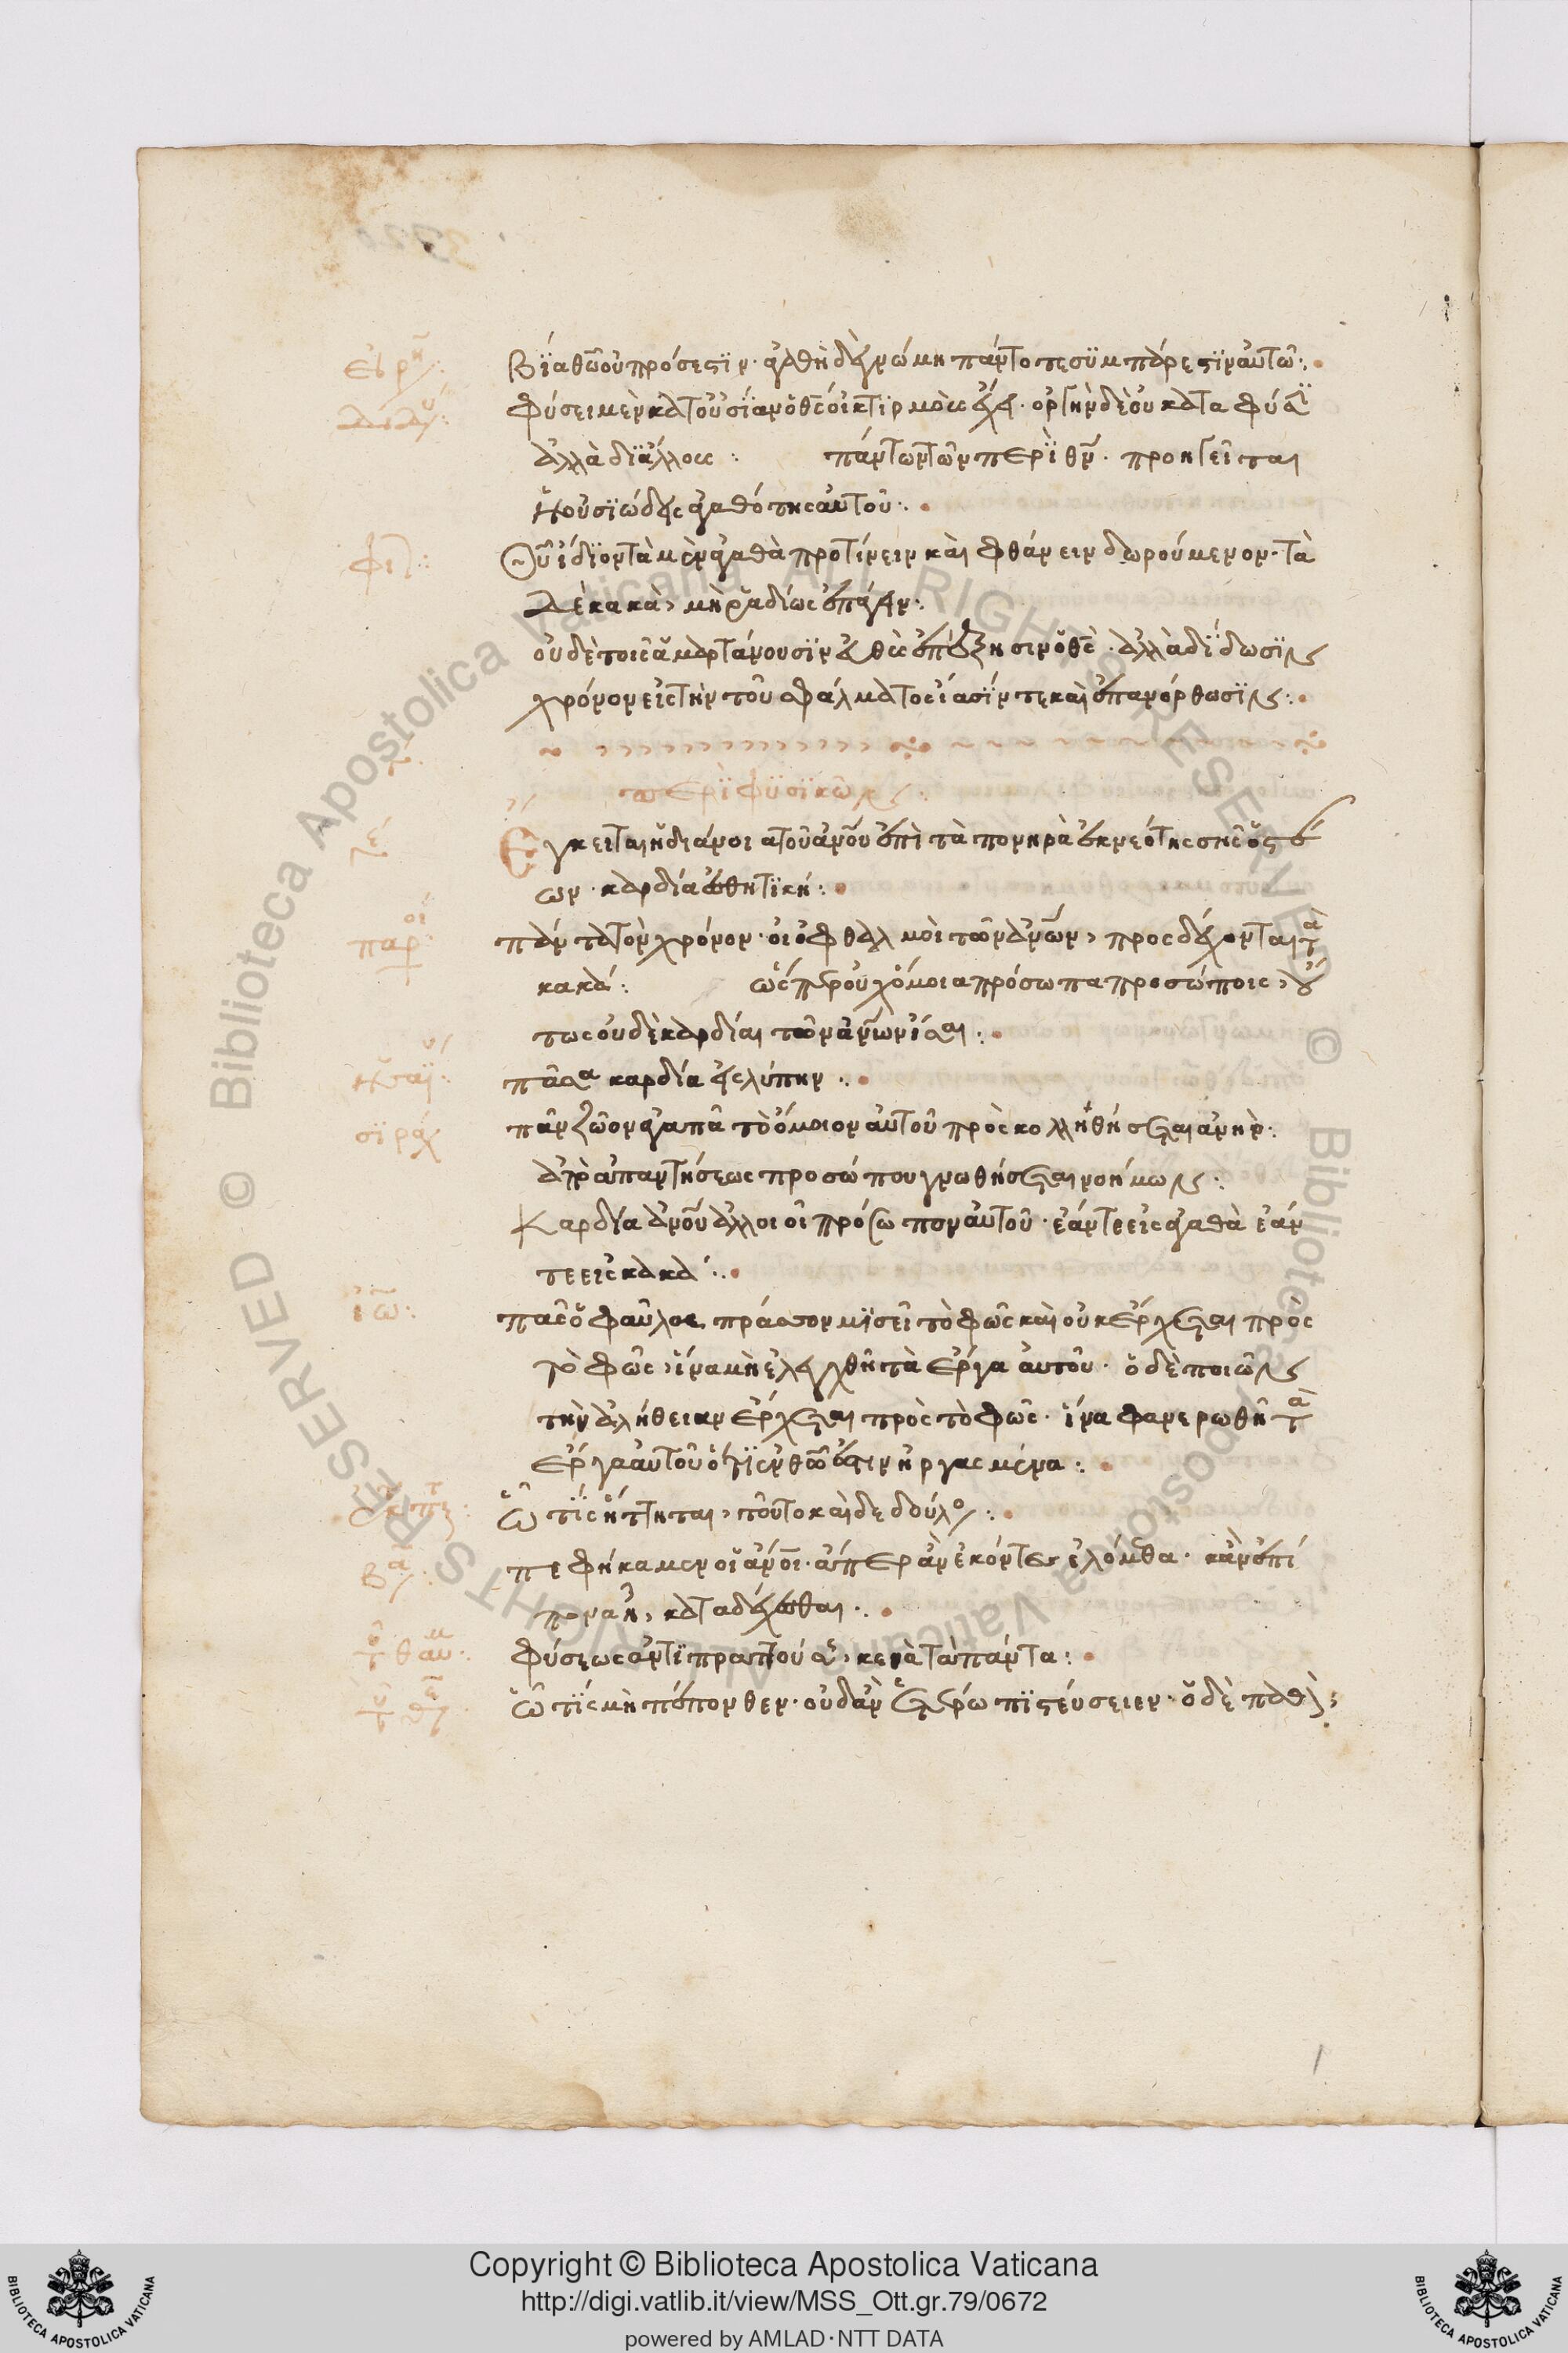 Βία θ(ε)ῶ οὐ πρόσεστιν· ἀγαθὴ δὲ γνώμη πάντοτε συμπάρεστιν αὐτῶ:
Φύσει μὲν κατ' οὐσίαν ὁ θ(εὸ)ς οἰκτιρμοὺς ἔχει· ὀργὴν δὲ οὐ κατα φύσι
ἀλλὰ δι' ἄλλους: πάντων τῶν περὶ θ(εο)ῦ· προηγεῖται
ἡ οὐσιώδης ἀγαθότης αὐτοῦ:
Φιλ:
Θ(ε)οῦ ἴδιον τὰ μὲν ἀγαθὰ προτίνειν καὶ φθάνειν δωρούμενον· τὰ
δὲ κακὰ, μὴ ῥαδίως ἐπάγειν:
οὐδὲ τοῖς ἁμαρτάνουσιν εὐθὺς ἐπέξησιν ὁ θ(εὸ)ς· ἀλλὰ δίδωσιν
χρόνον εἰς τὴν τοῦ σφάλματος ἴασίν τε καὶ ἐπανόρθωσιν:
περὶ φυσικῶν:
Ἔγκειται ἡ διάνοια τοῦ ἀν(θρώπ)ου ἐπὶ τὰ πονηρὰ ἐκ νεότητος
ων· καρδία αἰσθητικὴ:
παρ οι
πάντα τὸν χρόνον· οἱ ὀφθαλμοὶ τῶν ἀν(θρώπ)ων, προσδέχονται τὰ
κακά: ὥσπερ οὐχ ὅμοια πρόσωπα προσώποις, οὕ
τως οὐδὲ καρδίαι τῶν ἀν(θρώπ)ων ἴσαι:
Ἡσαΐ:
πᾶσα καρδία εἰς λύπην:
σιράχ
πᾶν ζῶον ἀγαπᾶ τὸ ὅμοιον αὐτοῦ προσκολληθήσεται ἀνὴρ:
ἀπὸ ἀπαντήσεως προσώπου γνωθήσεται νοήμων:
Καρδία ἀν(θρώπ)ου ἀλλοιοῖ πρόσωπον αὐτοῦ· ἐάν τε εἰς ἀγαθὰ ἐάν
τε εἰς κακά:
ἰω:
πᾶς ὁ φαῦλος πράσσων μισεῖ τὸ φῶς καὶ οὐκ ἔρχεται πρὸς
τὸ φῶς, ἵνα μὴ ἐλεγχθῆ τὰ ἔργα αὐτοῦ· ὁ δὲ ποιῶν
τὴν ἀλήθειαν ἔρχεται πρὸς τὸ φῶς· ἵνα φανερωθῆ τὰ
ἔργα αὐτοῦ ὅτι ἐν θ(ε)ῶ ἐστιν ἠργασμένα:
Ὧ τίς ἥττηται, τοῦτο καὶ δεδούλο:
Βα:
πεφήκαμεν οἱ ἄν(θρωπ)οι· ἅπερ ἂν ἑκόντες ἑλόμεθα· κἂν ἐπί
πονα ἦ, καταδέχεσθαι:
Φύσεως ἀντιπραττούσης, κενὰ τὰ πάντα:
ὧ τίς μὴ πέπονθεν· οὐδ' ἂν ἑτέρω πιστεύσειεν· ὁ δὲ παθὼ
Copyright © Biblioteca Apostolica Vaticana
http://digi.vatlib.it/view/MSS_Ott.gr.79/0672
powered by AMLAD·NTT DATA